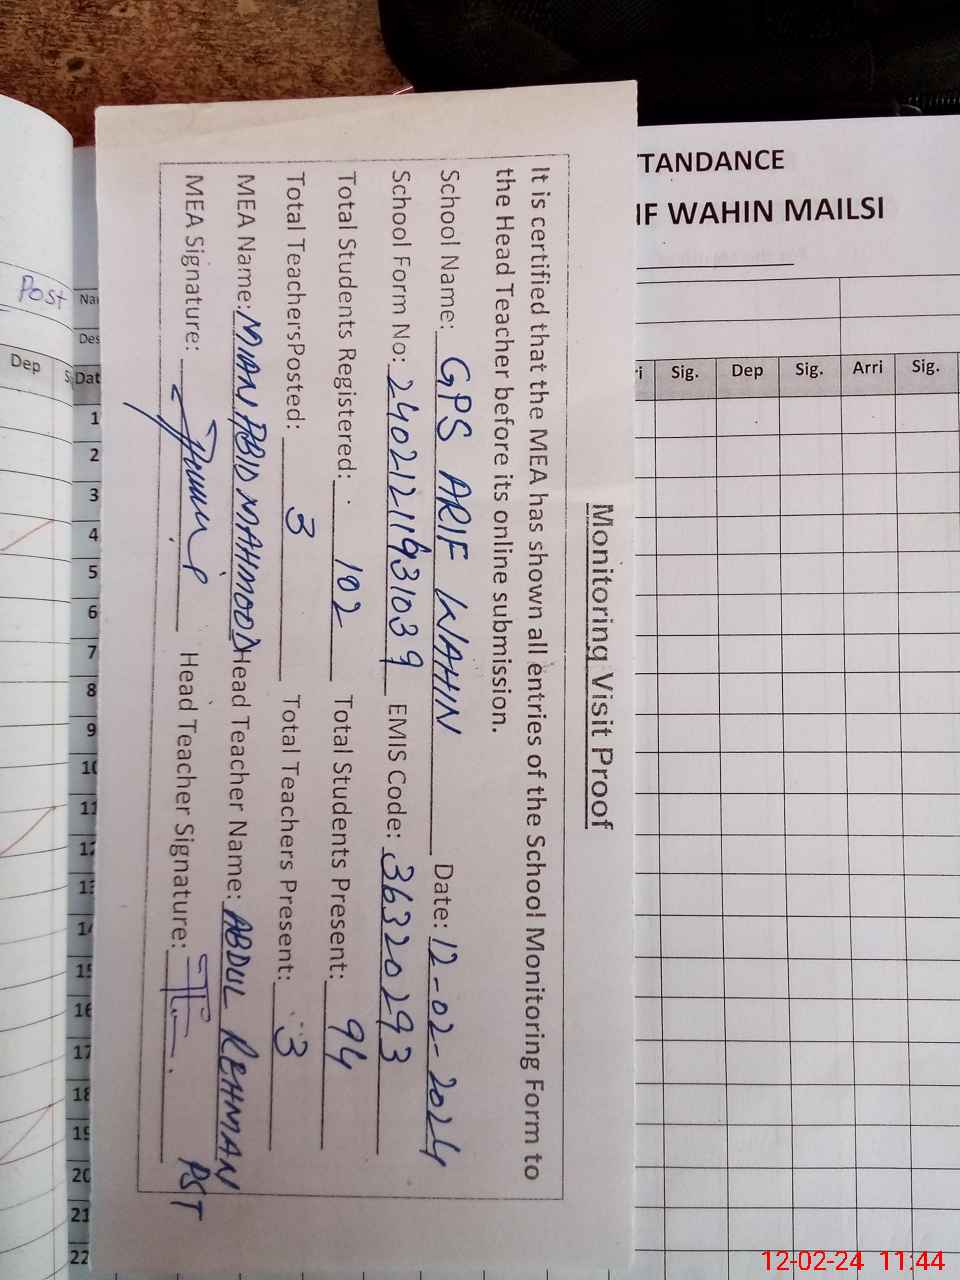 Monitoring Visit Proof
It is certified that the MEA has shown all entries of the School Monitoring Form to
the Head Teacher before its online submission.
School Name: GPS ARIF WAHIN Date: 12-02-2024
School Form No: 24021211931039 EMIS Code: 36320293
Total Students Registered: 102 Total Students Present: 94
Total TeachersPosted: 3 Total Teachers Present: 3
MEA Name: MIAN ABID MAHMOOD Head Teacher Name: ABDUL REHMAN
MEA Signature: Head Teacher Signature: PST
TANDANCE
IF WAHIN MAILSI
Post
Nar
Des
Dep
S
Dat
ri Sig. Dep Sig. Arri Sig.
1
2
3
4
5
6
7
8
9
10
11
12
13
14
15
16
17
18
19
20
21
22
12-02-24 11:44